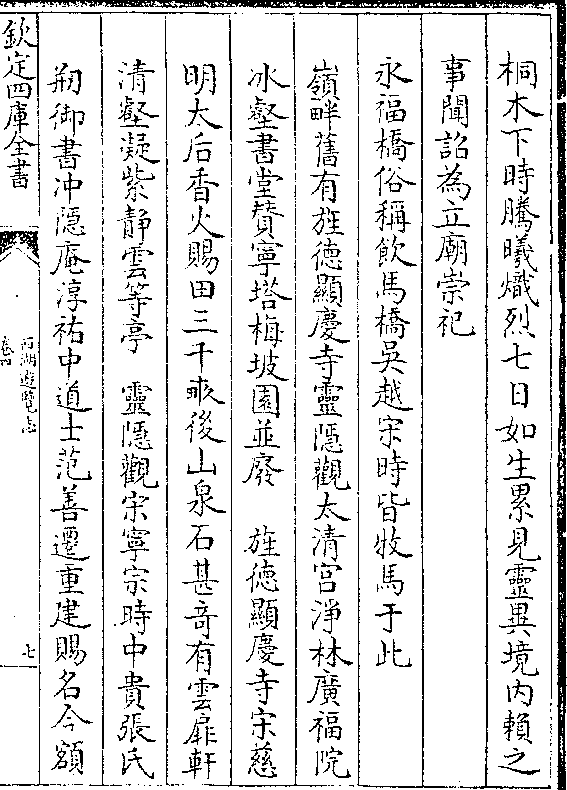 桐木下時騰曦熾烈七日如生累見靈異境内賴之
事聞詔為立廟崇祀
永福橋俗稱飲馬橋吳越宋時皆牧馬于此
嶺畔舊有旌德顯慶寺靈隱觀太清宮淨林廣福院
冰壑書堂賛寧塔梅坡園並廢　旌德顯慶寺宋慈
明太后香火賜田三千畝後山泉石甚奇有雲扉軒
清壑凝紫靜雲等亭　靈隱觀宋寧宗時中貴張氏
剏御書冲隱庵淳祐中道士范善遷重建賜名今額
欽定四庫全書
西湖遊覽志
卷四
七